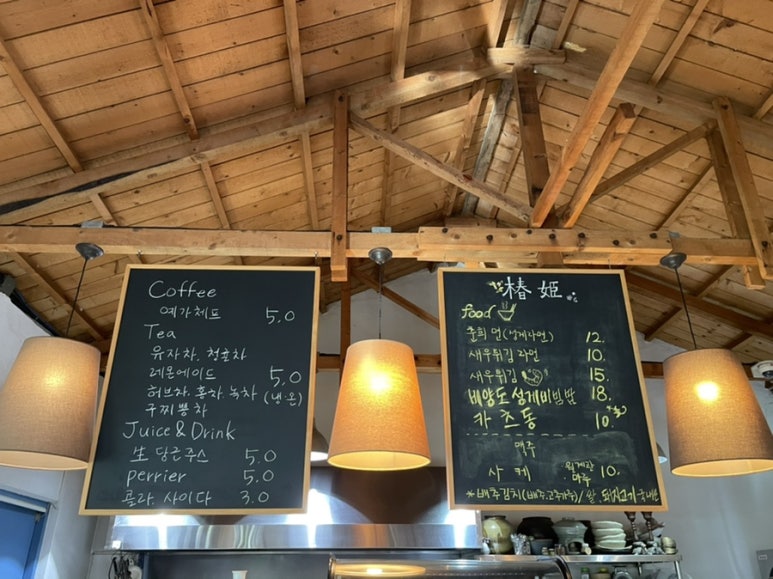 Coffee
예가체프 5.0
Tea
유자차. 청귤차
레몬에이드 5.0
허브차. 홍차. 녹차 (냉·온)
구찌뽕차
Juice & Drink
生 당근주스 5.0
perrier 5.0
콜라. 사이다 3.0
椿姬
food
춘희 면(성게라면) 12.
새우튀김 라면 10.
새우튀김 15
비양도 성게비빔밥 18.
카츠동 10.
맥주
사케 10.
*배추김치(배추,고추가루)/쌀, 돼지고기 국내산